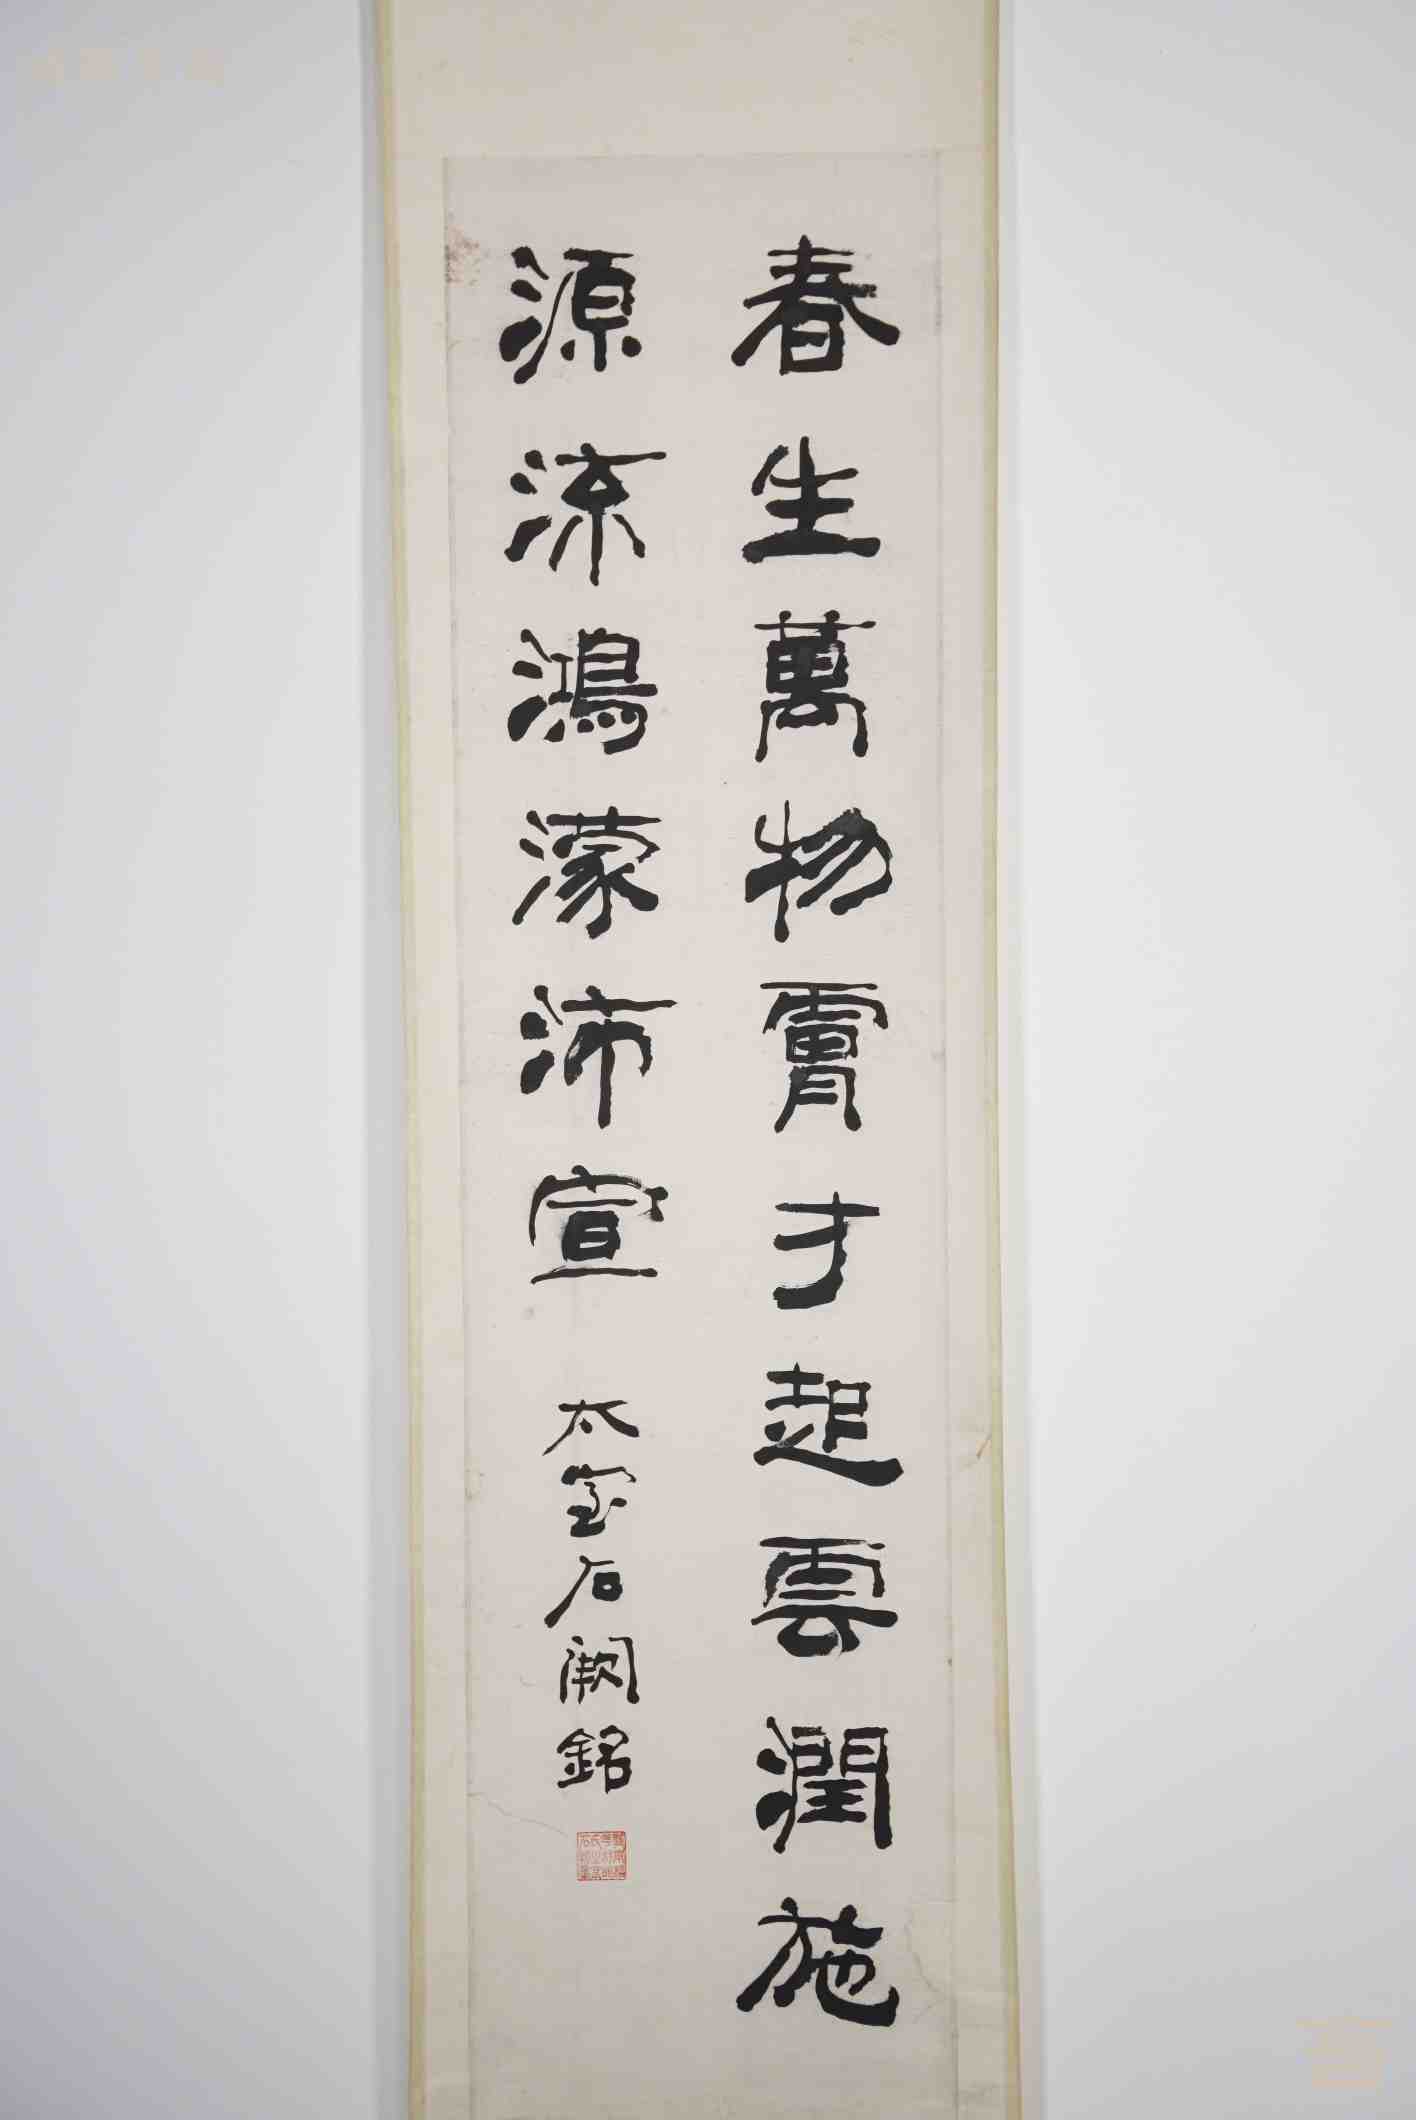 春生萬物膚寸起雲潤施
源流鴻濛沛宣
太室石闕銘